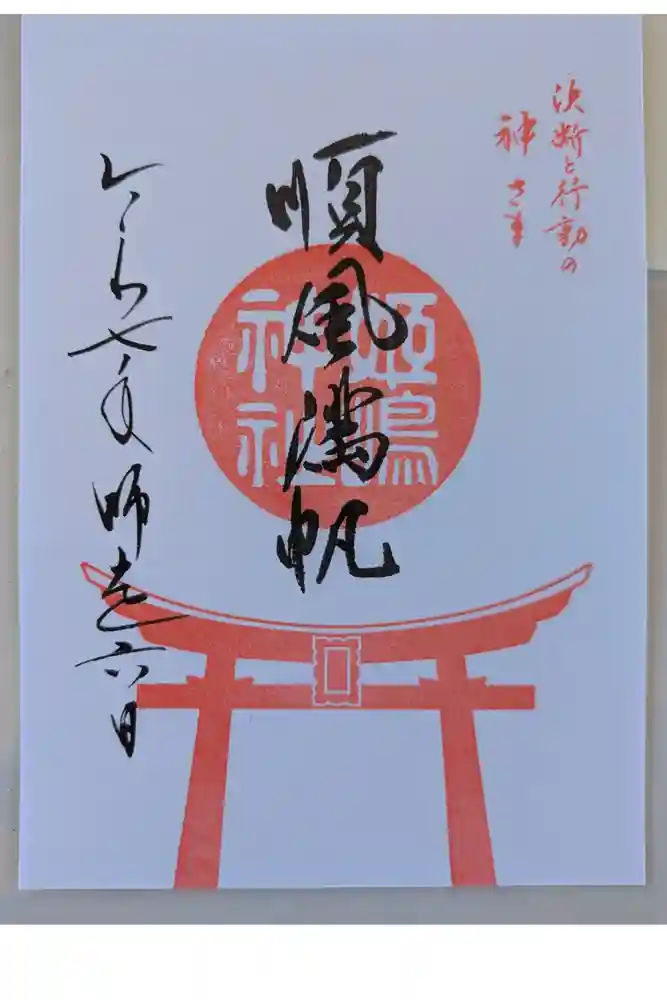 決断と行動の
神さま
順風満帆
姫嶋
神社
令和七年師走六日